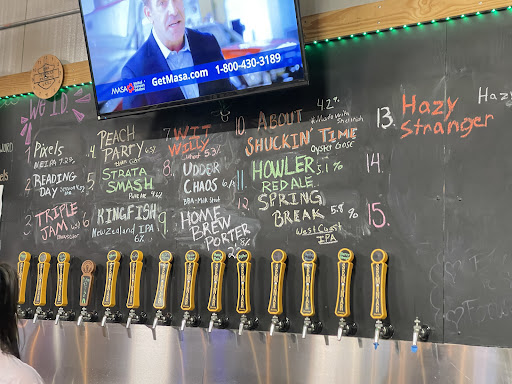 GetMasa.com 1-800-430-3189
MASA
WE I.D.
1. Pixels
NEIPA 7.2%
2. READING
DAY
3. TRIPLE
JAM
4. PEACH
PARTY
5. STRATA
SMASH
Pale Ale
6. KINGFISH
New Zealand IPA
6%
7. WIT
WILLY
Wheat 5.3%
8. UDDER
CHAOS
BBA-Milk Stout
9. HOME
BREW
PORTER
8%
10. ABOUT
SHUCKIN' TIME
4.2%
OYSTER GOSE
11. HOWLER 5.1%
RED ALE
12. SPRING
BREAK 5.8%
West Coast
IPA
13. Hazy
Stranger
14.
15.
Hazy